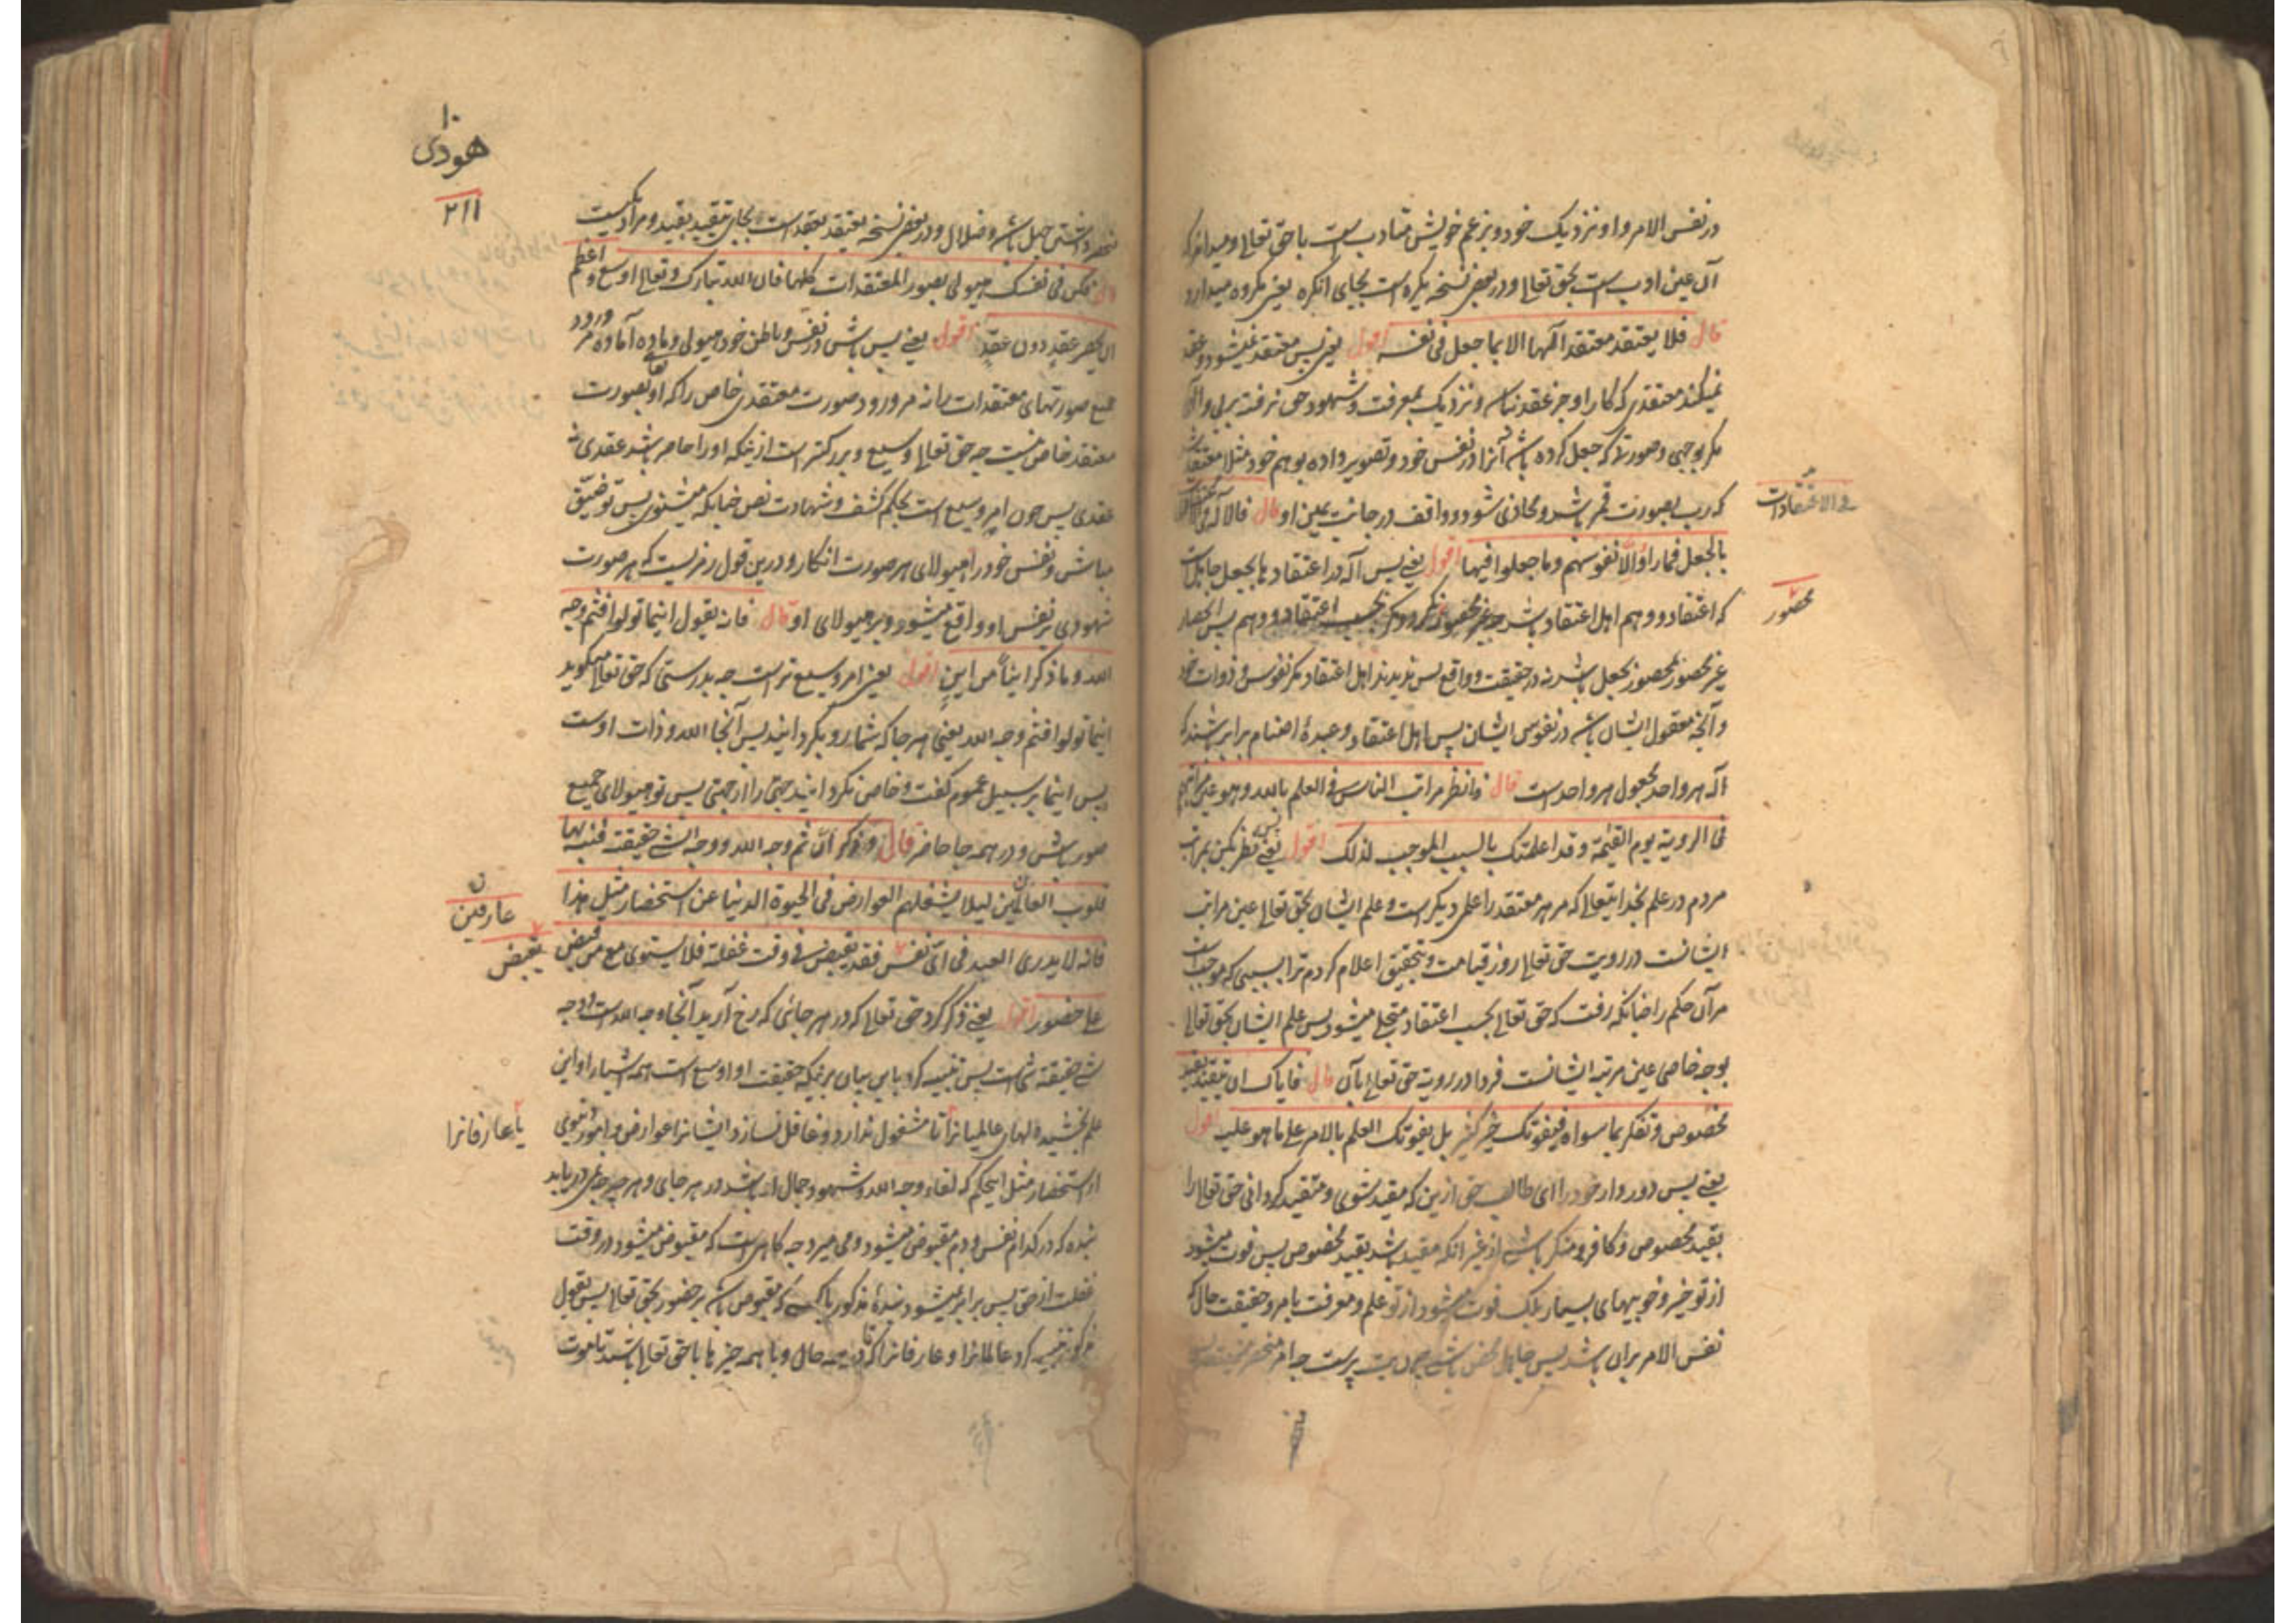 در نفس الامر و او نزدیک خود و بزعم خویش متادب است با حق تعالی و میداند که
آن عین ادب است بحق تعالی و در بعض نسخه یکره است بجای انکره یعنی مکروه میدارد
قال فلا یعتقد معتقد الٰها الا بما جعل فی نفسه اقول یعنی پس معتقد نمیشود و عقد
نمیکند معتقدی که کار او جز عقد نباشد و نزدیک بمعرفت و شهود حق نرفته
مگر بوجهی و صورتی که جعل کرده باشد آنرا در نفس خود و تصویر داده بوهم خود مثلا معتقد
که رب بصورت قمر باشد و محاذی شود و واقف در جانب یمین او قال فالاله فی الاعتقادات
بالجعل فما راوا الا نفوسهم وما جعلوا فیها اقول یعنی پس آله در اعتقادها بجعل جاعل است
که اعتقاد و وهم اهل اعتقاد باشد چه غیر محصور نگردد مگر بحسب اعتقاد و وهم پس انحصار
غیر محصور محصور بجعل باشد نه در حقیقت و واقع پس ندیدند اهل اعتقاد مگر نفوس و ذوات خود
و آنچه معقول ایشان باشد در نفوس ایشان پس اهل اعتقاد و عبدهٔ اصنام برابر شدند که
آله هر واحد مجعول هر واحد است قال فانظر مراتب الناس فی العلم بالله وهو عین مراتبهم
فی الرویة یوم القیٰمة وقد اعلمتک بالسبب الموجب لذلک اقول یعنی پس نظر بکن بمراتب
مردم در علم بخدایتعالی که مر هر معتقد را علمی دیگر است و علم ایشان بحق تعالی عین مراتب
ایشانست در رویت حق تعالی روز قیامت و بتحقیق اعلام کردم ترا بسببی که موجب است
مر آن حکم را چنانکه رفت که حق تعالی بحسب اعتقاد متجلی میشود پس علم ایشان بحق تعالی
بوجه خاص عین مرتبه ایشانست فردا در رویة حق تعالی بآن قال فایاک ان تتقید بقید
مخصوص وتکفر بما سواه فیفوتک خیر کثیر بل یفوتک العلم بالامر علی ما هو علیه اقول
یعنی پس دور دار خود را ای طالب حق ازین که مقید شوی و متقید گردانی حق تعالی را
بقید مخصوص و کافر و منکر باشی از غیر آنکه مقید باشد بقید مخصوص پس فوت میشود
از تو خیر و خوبیهای بسیار بلکه فوت میشود از تو علم و معرفت بامر و حقیقت حال که
نفس الامر بران باشد پس جاهل محض باشی چون بت پرست چه امر منحصر
فی الاعتقادات
محصور
۱۰
هودی
۲۱۱
منحصر داشتن جهل باشد و ضلال و در بعض نسخه یعتقد بعقد است بجای تتقید بقید و مراد یکیست
قال فکن فی نفسک هیولی لصور المعتقدات کلها فان الله تبارک وتعالی اوسع واعظم
ان یحصره عقد دون عقد اقول یعنی پس باش در نفس و باطن خود هیولی و ماده آماده مر ورود
جمیع صورتهای معتقدات را نه مر ورود صورت معتقدی خاص را که او بصورت
معتقد خاص نیست چه حق تعالی وسیع و بزرگتر است ازینکه او را حاصر باشد عقدی نه
عقدی پس چون امر وسیع است بحکم کشف و شهادت نص چنانکه میشنوی پس تو ضیق
مباش و نفس خود را هیولای هر صورت انگار و درین قول رمزیست که هر صورت
شهودی بر نفس او واقع میشود و بر هیولای او قال فانه یقول اینما تولوا فثم وجه
الله وما ذکر اینا من این اقول یعنی امر وسیع تر است چه بدرستی که حق تعالی میگوید
اینما تولوا فثم وجه الله یعنی هر جا که شما رو بگردانید پس آنجا الله و ذات اوست
پس اینما بر سبیل عموم گفت و خاص نگردانید جهتی را از جهتی پس تو هیولای جمیع
صور باش و در همه جا حاضر قال وذکر ان ثم وجه الله ووجه الشیء حقیقته فنبه بهذا
قلوب العالمین لیلا یشغلهم العوارض فی الحیوة الدنیا عن استحضار مثل هذا
فانه لا یدری العبد فی ای نفس فقد یقبض فی وقت غفلة فلا یستوی مع من قبض
علی حضور اقول یعنی ذکر کرد حق تعالی که در هر جائی که رخ آرید آنجا وجه الله است و وجه
شی حقیقة شی است پس تنبیه کرد باین بیان برینکه حقیقت او اوسع است همه اشیاء را و این
علم بخشیده دلهای عالمیانرا تا مشغول ندارد و غافل نسازد ایشانرا عوارض و امور دنیوی
از استحضار مثل این حکم که لقاء وجه الله و شهود جمال او باشد در هر جای و هر چیز چه نمی دریابد
بنده که در کدام نفس و دم مقبوض میشود و می میرد چه گاهی است که مقبوض میشود در وقت
غفلت از حق پس برابر نمیشود بندهٔ مذکور با کسی که مقبوض باشد بر حضور بحق تعالی پس بقول
مذکور تنبیه کرد عالمانرا و عارفانرا که در همه حال و با همه چیزها با حق تعالی باشند تا موت
عارفین
یقبض
یا عارفانرا